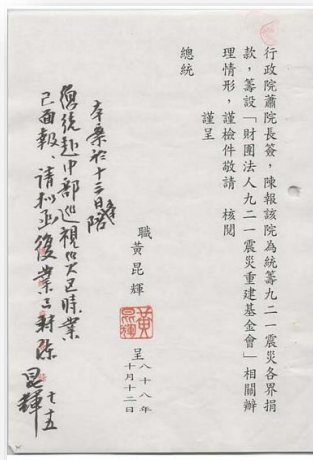 行政院蕭院長簽，陳報該院為統籌九二一震災各界捐
款，籌設「財團法人九二一震災重建基金會」相關辦
理情形，謹檢件敬請　核閱
謹呈
總統
職黃昆輝
呈八十八年
十月十二日
黃昆輝
本案於十三日陪
總統赴中部巡視災區時業
已面報、请
復業
昆輝